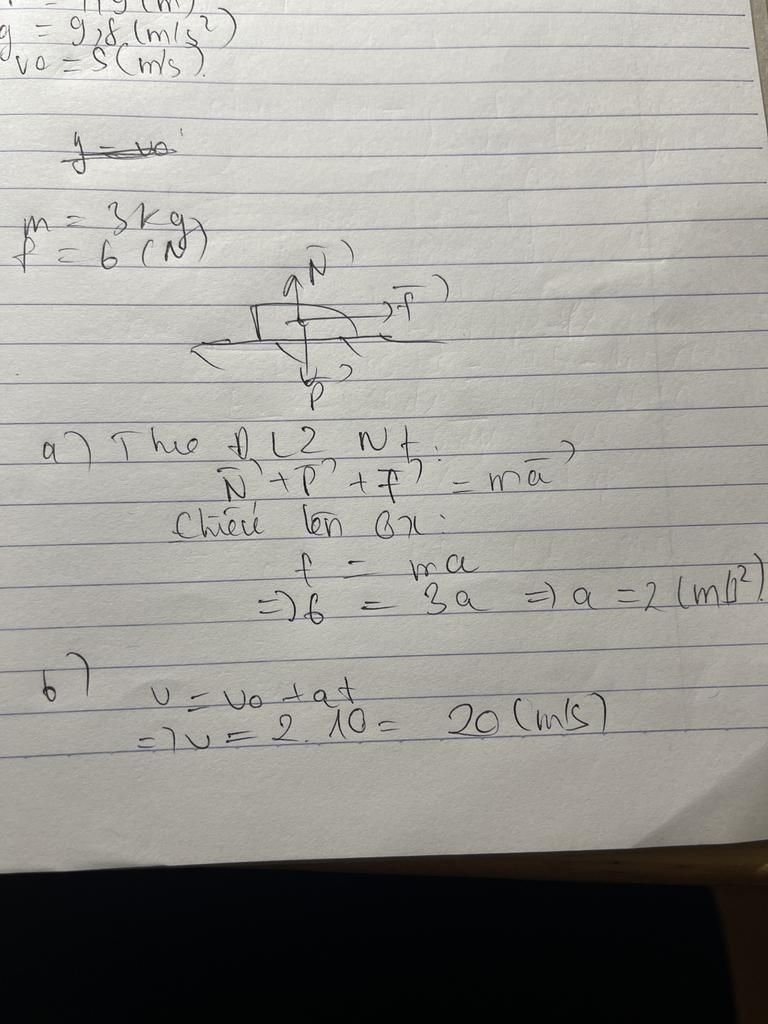 g = 9,8 (m/s²)
v0 = 5 (m/s).
g = v0
m = 3kg
f = 6 (N)
N
f
P
a) Theo ĐL2 Nt:
N + P + f = ma
Chiếu lên Ox:
f = ma
=> 6 = 3a => a = 2 (m/s²).
b)
v = v0 + at
=> v = 2.10 = 20 (m/s)